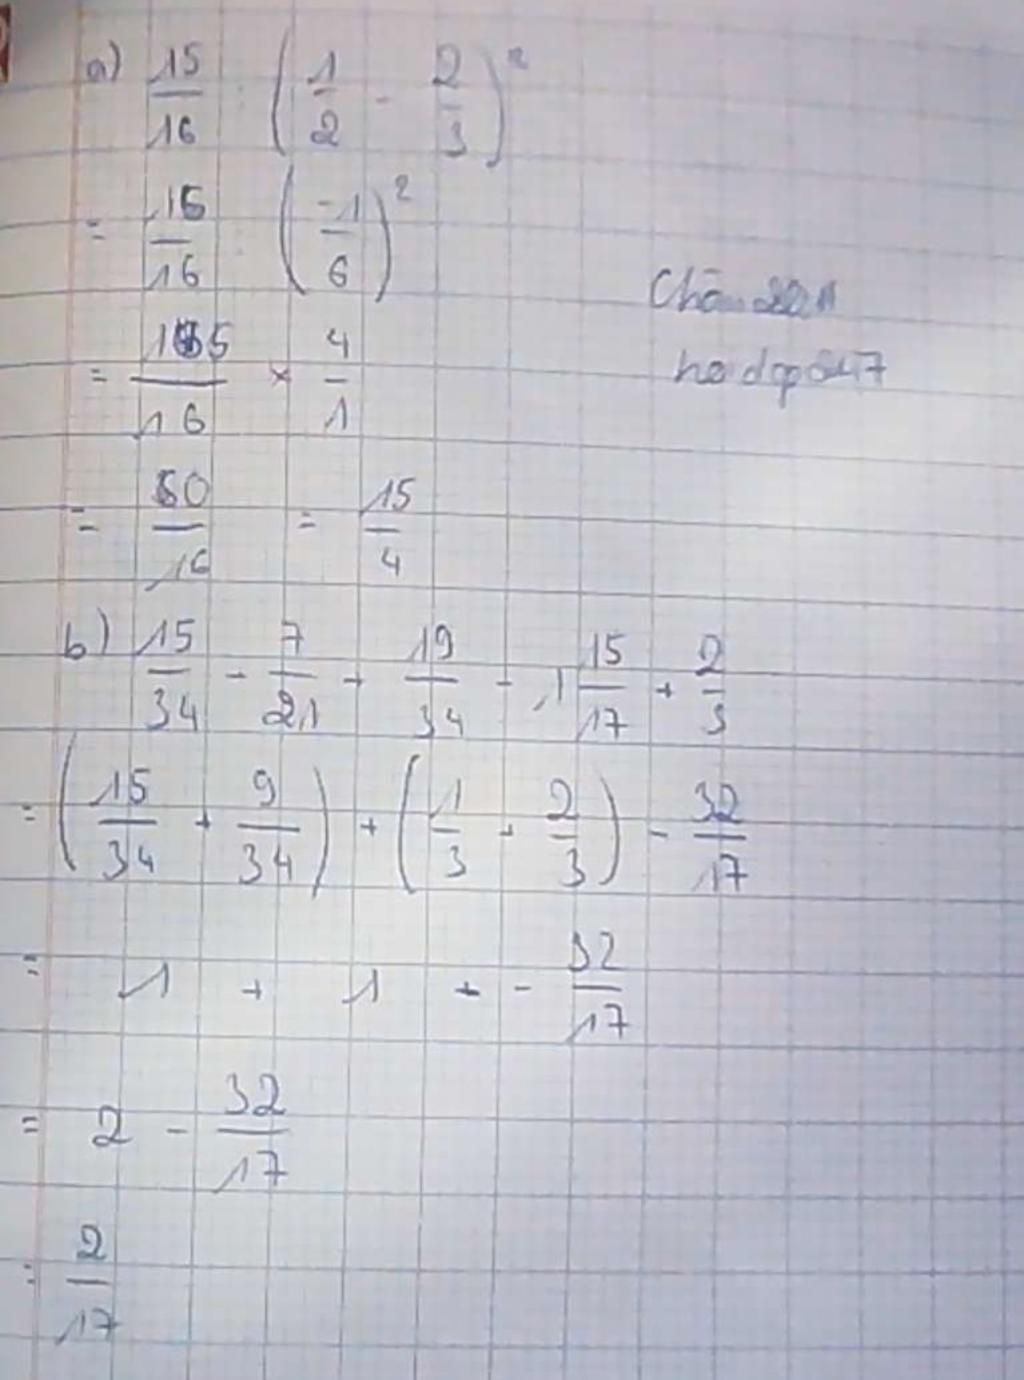 a) 15/16 : (1/2 - 2/3)²
= 15/16 : (-1/6)²
= 155/16 × 4/1
= 60/16 = 15/4
b) 15/34 - 7/21 + 19/34 - 1 15/17 + 2/3
= (15/34 + 9/34) + (1/3 + 2/3) - 32/17
= 1 + 1 + - 32/17
= 2 - 32/17
= 2/17